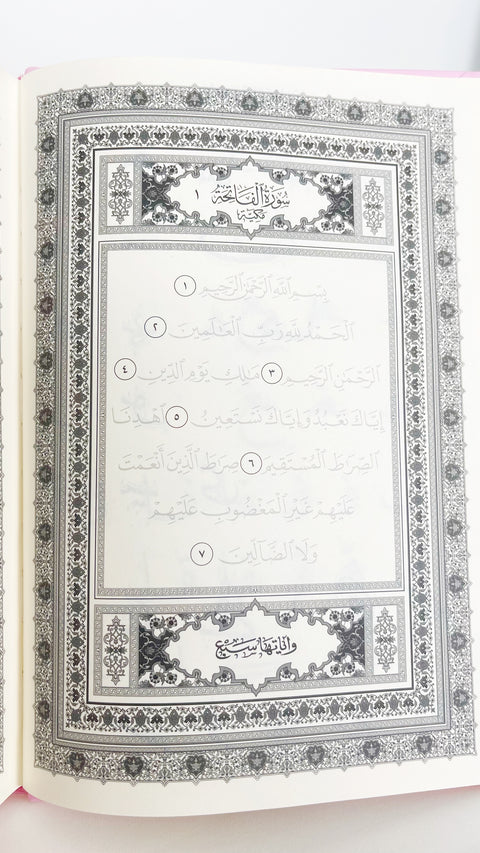 سُورَةُ ٱلْفَاتِحَةِ ١
مَكِّيَّة
بِسْمِ ٱللَّهِ ٱلرَّحْمَٰنِ ٱلرَّحِيمِ ١
ٱلْحَمْدُ لِلَّهِ رَبِّ ٱلْعَٰلَمِينَ ٢
ٱلرَّحْمَٰنِ ٱلرَّحِيمِ ٣ مَٰلِكِ يَوْمِ ٱلدِّينِ ٤
إِيَّاكَ نَعْبُدُ وَإِيَّاكَ نَسْتَعِينُ ٥ ٱهْدِنَا
ٱلصِّرَٰطَ ٱلْمُسْتَقِيمَ ٦ صِرَٰطَ ٱلَّذِينَ أَنْعَمْتَ
عَلَيْهِمْ غَيْرِ ٱلْمَغْضُوبِ عَلَيْهِمْ
وَلَا ٱلضَّآلِّينَ ٧
وآياتها سبع